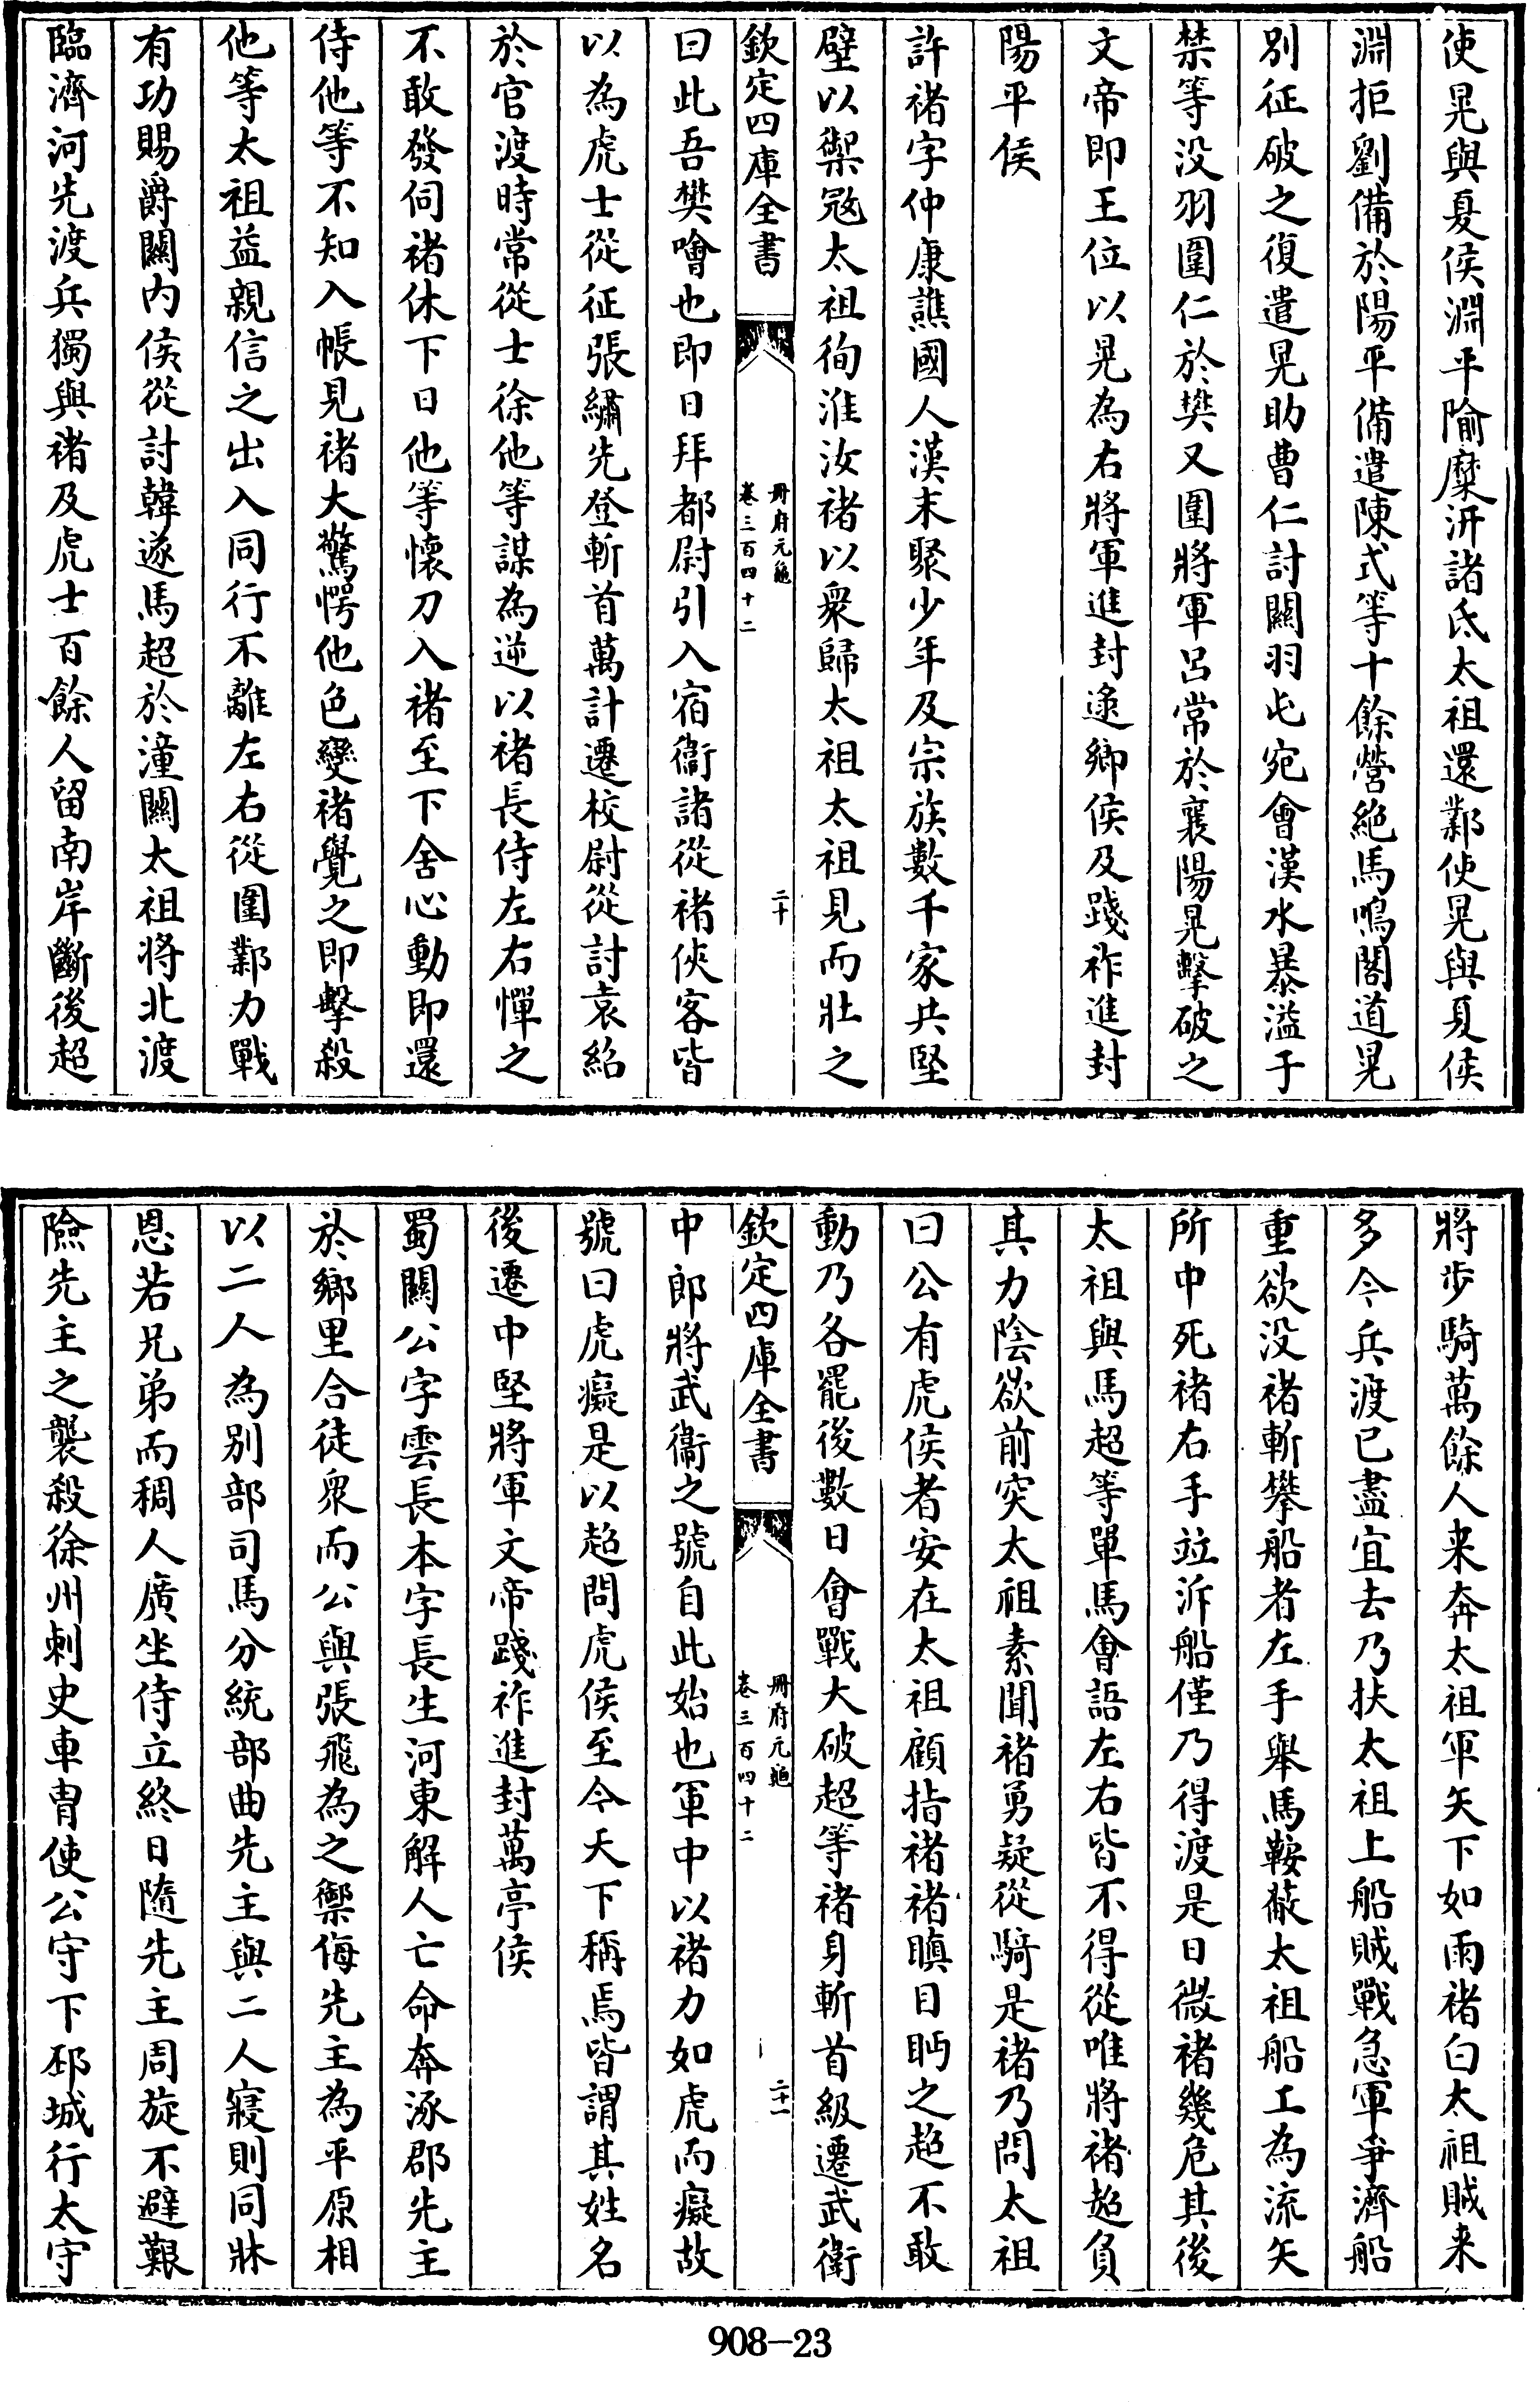 使晃與夏侯淵平隃糜汧諸氐太祖還鄴使晃與夏侯
淵拒劉備於陽平備遣陳式等十餘營絶馬鳴閣道晃
别征破之復遣晃助曹仁討關羽屯宛會漢水暴溢于
禁等没羽圍仁於樊又圍將軍吕常於襄陽晃擊破之
文帝即王位以晃為右將軍進封逯卿侯及踐祚進封
陽平侯
許褚字仲康譙國人漢末聚少年及宗族數千家共堅
壁以禦冦太祖徇淮汝褚以衆歸太祖太祖見而壯之
欽定四庫全書
册府元龜
卷三百四十二
二十
曰此吾樊噲也即日拜都尉引入宿衞諸從褚俠客皆
以為虎士從征張繡先登斬首萬計遷校尉從討袁紹
於官渡時常從士徐他等謀為逆以褚長侍左右憚之
不敢發伺褚休下日他等懷刀入褚至下舍心動即還
侍他等不知入帳見褚大驚愕他色變褚覺之即擊殺
他等太祖益親信之出入同行不離左右從圍鄴力戰
有功賜爵關内侯從討韓遂馬超於潼關太祖將北渡
臨濟河先渡兵獨與褚及虎士百餘人留南岸斷後超
將步騎萬餘人来奔太祖軍矢下如雨褚白太祖賊来
多今兵渡已盡宜去乃扶太祖上船賊戰急軍爭濟船
重欲没褚斬攀船者左手舉馬鞍蔽太祖船工為流矢
所中死褚右手竝泝船僅乃得渡是日微褚幾危其後
太祖與馬超等單馬會語左右皆不得從唯將褚超負
其力陰欲前突太祖素聞褚勇疑從騎是褚乃問太祖
曰公有虎侯者安在太祖顧指褚褚瞋目眄之超不敢
動乃各罷後數日會戰大破超等褚身斬首級遷武衛
欽定四庫全書
册府元龜
卷三百四十二
二十一
中郎將武衞之號自此始也軍中以褚力如虎而癡故
號曰虎癡是以超問虎侯至今天下稱焉皆謂其姓名
後遷中堅將軍文帝踐祚進封萬亭侯
蜀關公字雲長本字長生河東解人亡命奔涿郡先主
於鄉里合徒衆而公與張飛為之禦侮先主為平原相
以二人為别部司馬分統部曲先主與二人寢則同牀
恩若兄弟而稠人廣坐侍立終日隨先主周旋不避艱
險先主之襲殺徐州刺史車胄使公守下邳城行太守
908-23